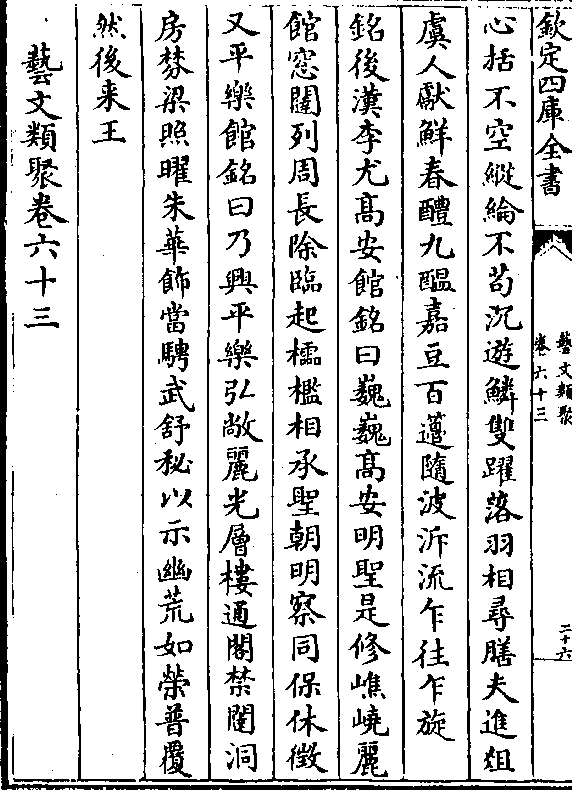 欽定四庫全書
藝文類聚
卷六十三
二十六
心括不空縱綸不苟沉遊鱗雙躍落羽相尋膳夫進俎
虞人獻鮮春醴九醖嘉豆百籩隨波泝流乍往乍旋
銘後漢李尤髙安館銘曰巍巍髙安明聖是修嶕嶢麗
館窓闥列周長除臨起櫺檻相承聖朝明察同保休徴
又平樂館銘曰乃興平樂弘敞麗光層樓通閣禁闥洞
房棼梁照曜朱華飾當騁武舒秘以示幽荒如榮普覆
然後来王
藝文類聚卷六十三